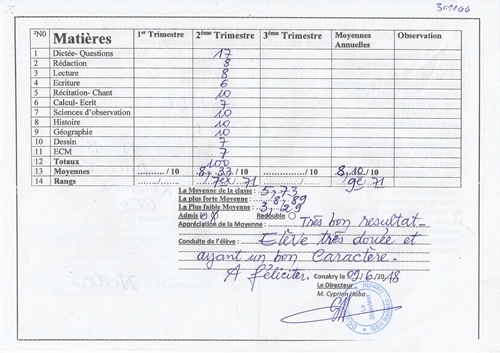 301166
²N0 Matières 1er Trimestre 2ème Trimestre 3ème Trimestre Moyennes Annuelles Observation
1 Dictée- Questions 17
2 Rédaction 8
3 Lecture 8
4 Ecriture 6
5 Récitation- Chant 10
6 Calcul- Ecrit 7
7 Sciences d'observation 10
8 Histoire 10
9 Géographie 10
10 Dessin 7
11 ECM 7
12 Totaux 100
13 Moyennes ............/ 10 8,33/ 10 ............/ 10 8,10/ 10
14 Rangs ............/ 7ex/71 ............/ 9e/ 71
La Moyenne de la classe : 5,73
La plus forte Moyenne : 8,89
La Plus faible Moyenne : 3,29
Admis Redouble
Appréciation de la Moyenne : Très bon resultat-
Conduite de l'élève : Elève très douée et
ayant un bon Caractère-
A féliciter. Conakry le 09/6/2018
Le Directeur
M. Cyprien Haba